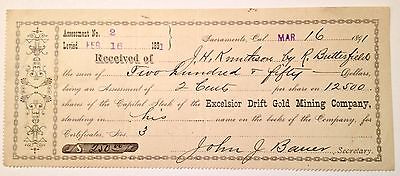 Assessment No. 2
Levied FEB 16 1891
Sacramento, Cal MAR 16 1891
Received of J. H. Knutson by R. Butterfield
the sum of Two hundred & fifty Dollars,
being an Assessment of 2 Cents per share on 12500
shares of the Capital Stock of the Excelsior Drift Gold Mining Company,
standing in his name on the books of the Company, for
Certificates, Nos. 3
$ 250
John J. Bauer Secretary.